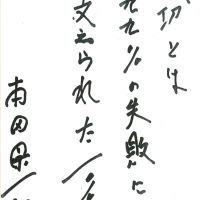 功とは
九九%の失敗に
支えられた一%
本田宗一